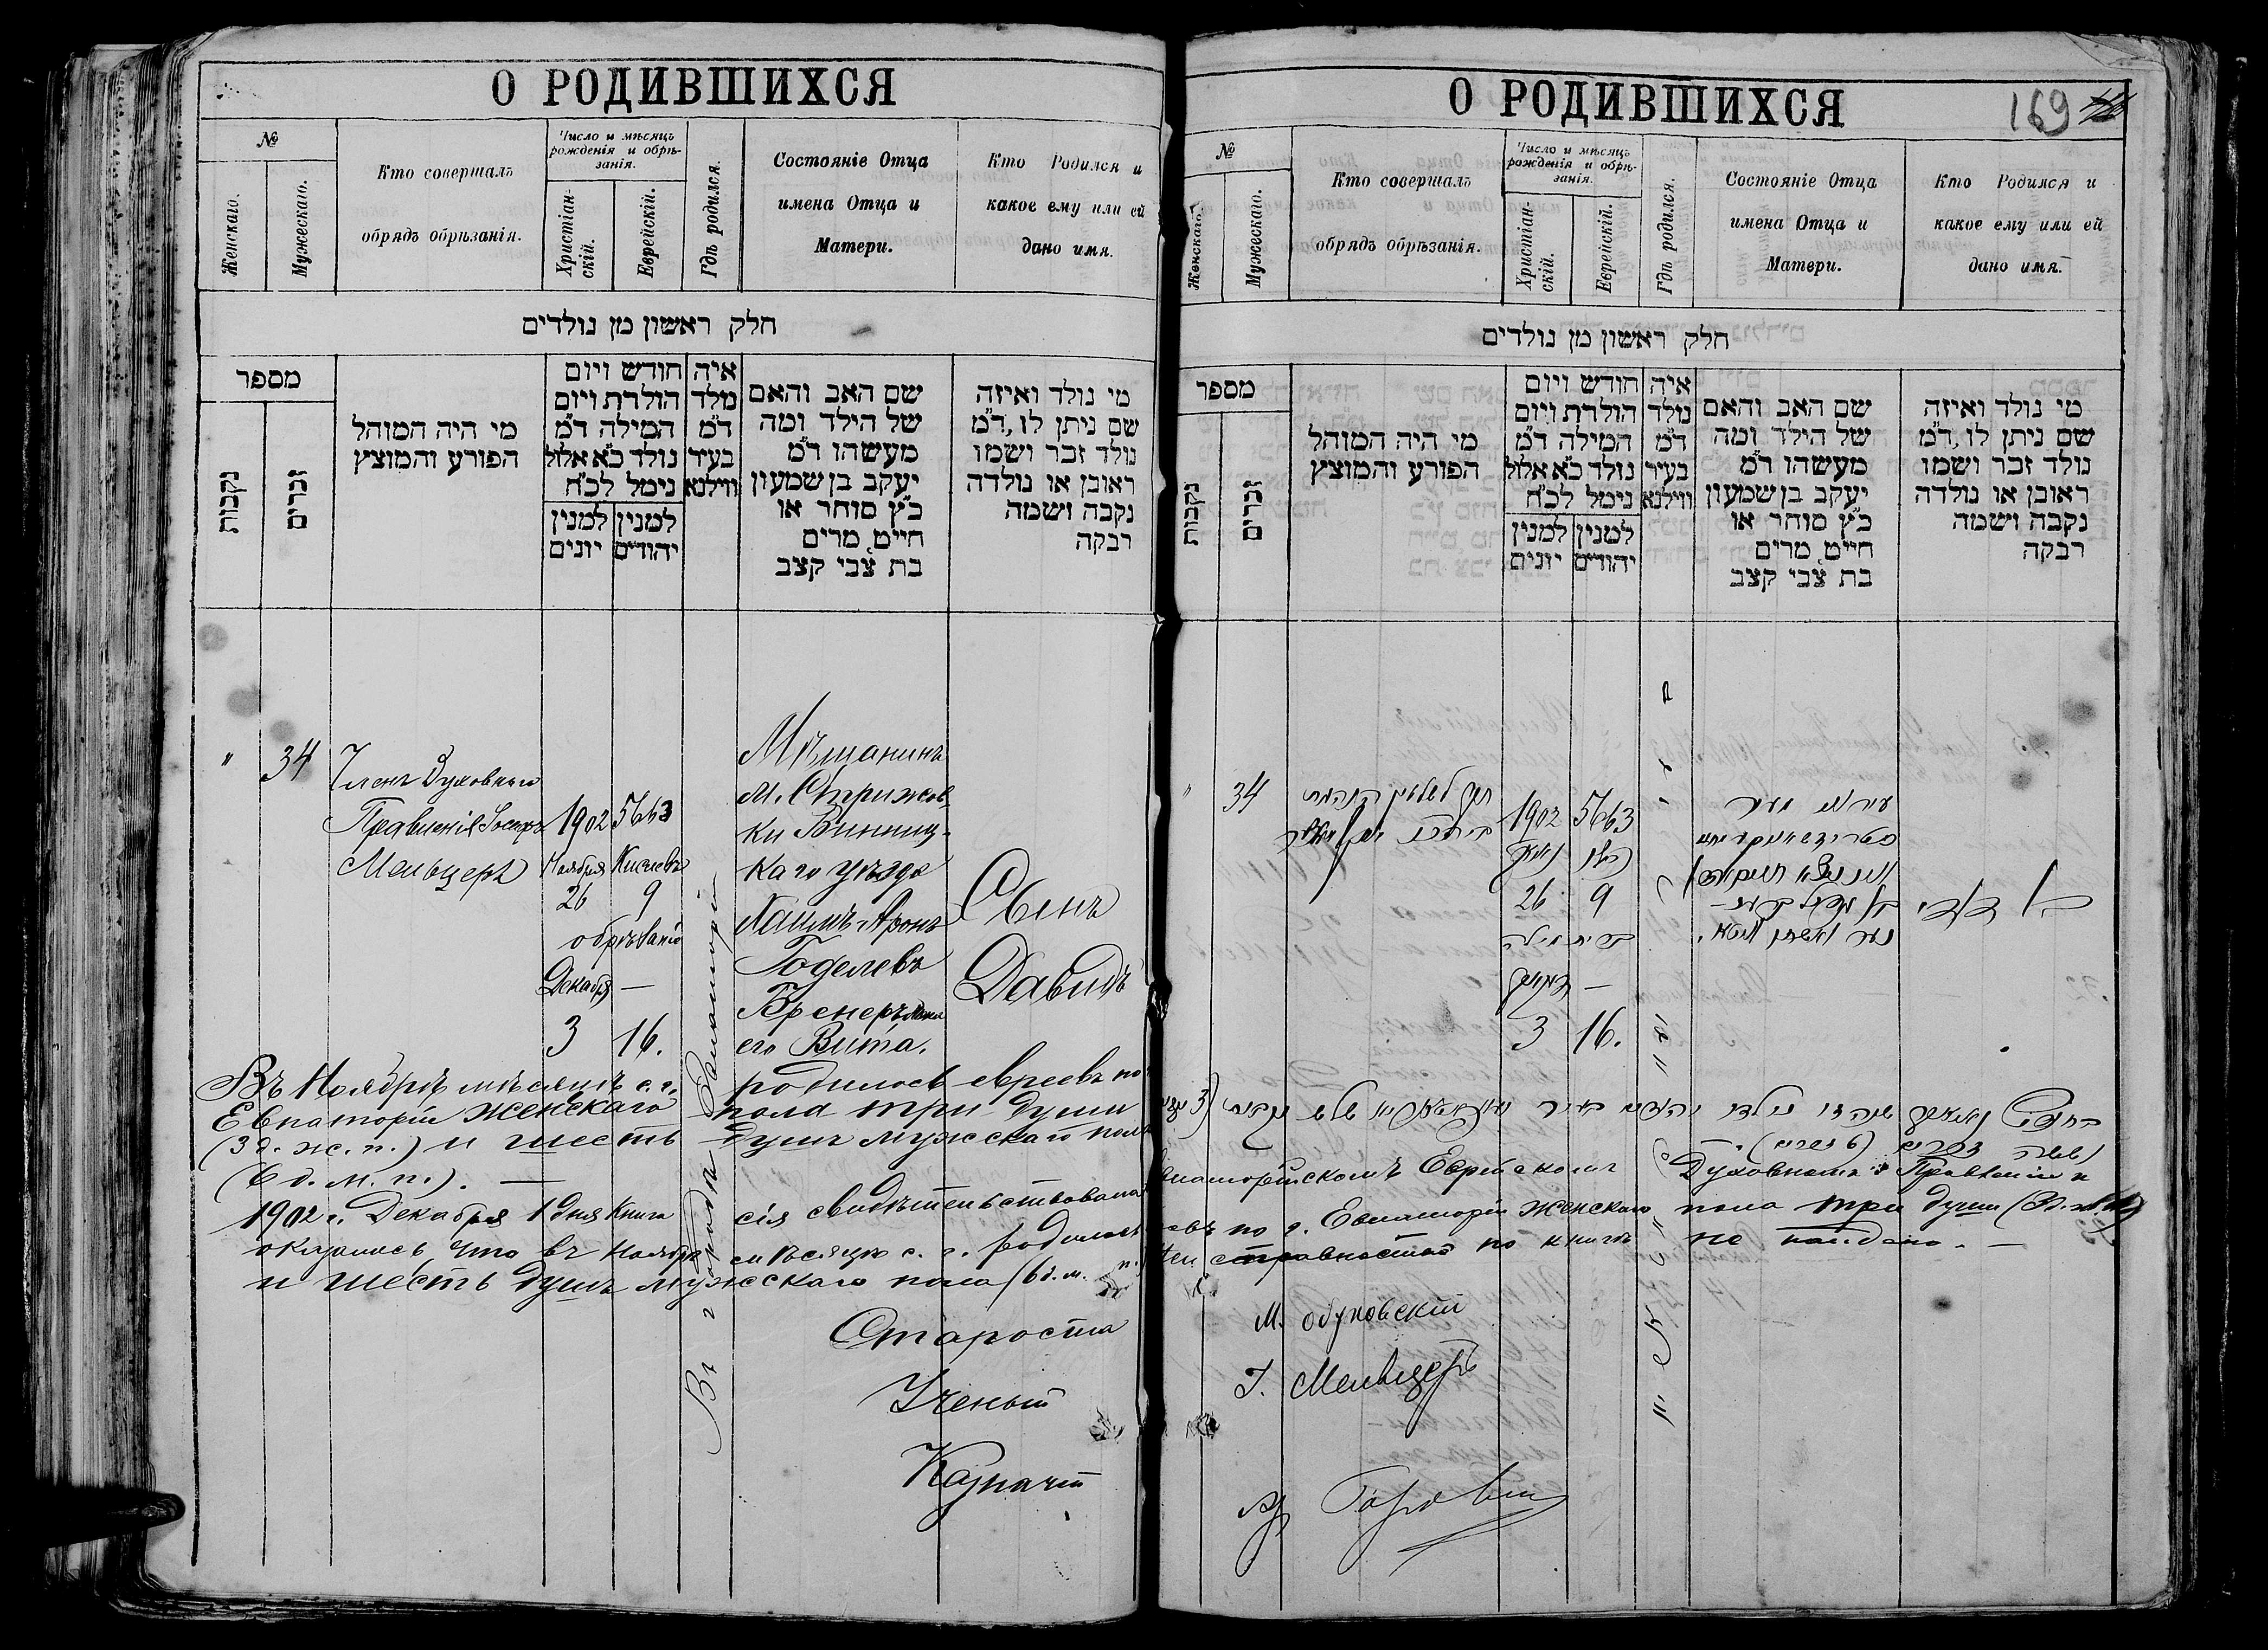 О РОДИВШИХСЯ
№
Женскаго.
Мужескаго.
Кто совершалъ
обрядъ обрѣзанія.
Число и мѣсяцъ
рожденія и обрѣ-
занія.
Христіан-
скій.
Еврейскій.
Гдѣ родился.
Состояніе Отца
имена Отца и
Матери.
Кто Родился и
какое ему или ей
дано имя.
חלק ראשון מן נולדים
מספר
נקבות
זכרים
מי היה המוהל
הפורע והמוצץ
חודש ויום
הולדת ויום
המילה ד"מ
נולד כ"א אלול
נימל לכ"ח
למנין יהודים
למנין יונים
איה
מלד
ד"מ
בעיר
ווילנא
שם האב והאם
של הילד ומה
מעשהו ד"מ
יעקב בן שמעון
כ"ץ סוחר או
חייט, מרים
בת צבי קצב
מי נולד ואיזה
שם ניתן לו, ד"מ
נולד זכר ושמו
ראובן או נולדה
נקבה ושמה
רבקה
"
34
Членъ Духовнаго
Правленія Іосифъ
Мельцеръ
1902
Ноября
26
5663
Кислевъ
9
обрѣзаніе
Декабря
—
3
16.
Въ городѣ Евпаторіи
Мѣщанинъ
м. Стрижов-
ки Винниц-
каго уѣзда
Хаимъ-Аронъ
Годелевъ
Бренеръ жена
его Вита.
Сынъ
Давидъ
Въ Ноябрѣ мѣсяцѣ с. г. родилось евреевъ по
Евпаторіи женскаго пола три души
(3 д. ж. п.) и шесть душъ мужскаго пола
(6 д. м. п.). —
1902 г. Декабря 1 дня Книга сія свидѣтельствована
оказалось что въ Ноябрѣ мѣсяцѣ с. г. родилось
и шесть душъ мужскаго пола (6 д. м. п.)
Староста
Ученый
Казначей
О РОДИВШИХСЯ
169
№
Женскаго.
Мужескаго.
Кто совершалъ
обрядъ обрѣзанія.
Число и мѣсяцъ
рожденія и обрѣ-
занія.
Христіан-
скій.
Еврейскій.
Гдѣ родился.
Состояніе Отца
имена Отца и
Матери.
Кто Родился и
какое ему или ей
дано имя.
חלק ראשון מן נולדים
מספר
נקבות
זכרים
מי היה המוהל
הפורע והמוצץ
חודש ויום
הולדת ויום
המילה ד"מ
נולד כ"א אלול
נימל לכ"ח
למנין יהודים
למנין יונים
איה
נולד
ד"מ
בעיר
ווילנא
שם האב והאם
של הילד ומה
מעשהו ד"מ
יעקב בן שמעון
כ"ץ סוחר או
חייט, מרים
בת צבי קצב
מי נולד ואיזה
שם ניתן לו, ד"מ
נולד זכר ושמו
ראובן או נולדה
נקבה ושמה
רבקה
"
34
1902
26
5663
כסלו
9
ברית מילה
—
3
16.
בן דוד
Евпаторійскомъ Еврейскомъ Духовномъ Правленіи и
евъ по г. Евпаторіи женскаго пола три души
неисправностей по книгѣ не найдено. —
М. Обуховскій
І. Мельцеръ